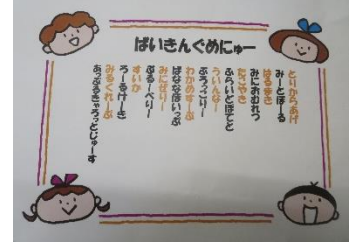 ばいきんぐめにゅー
とりからあげ
みーとぼーる
はるまき
みにおむれつ
たこやき
ふらいどぽてと
ういんなー
ぶろっこりー
わかめすーぷ
ばななぱいっぷ
みにぜりー
ぶるーべりー
すいか
ろーるけーき
みるくれーぷ
あっぷるきゃろっとじゅーす